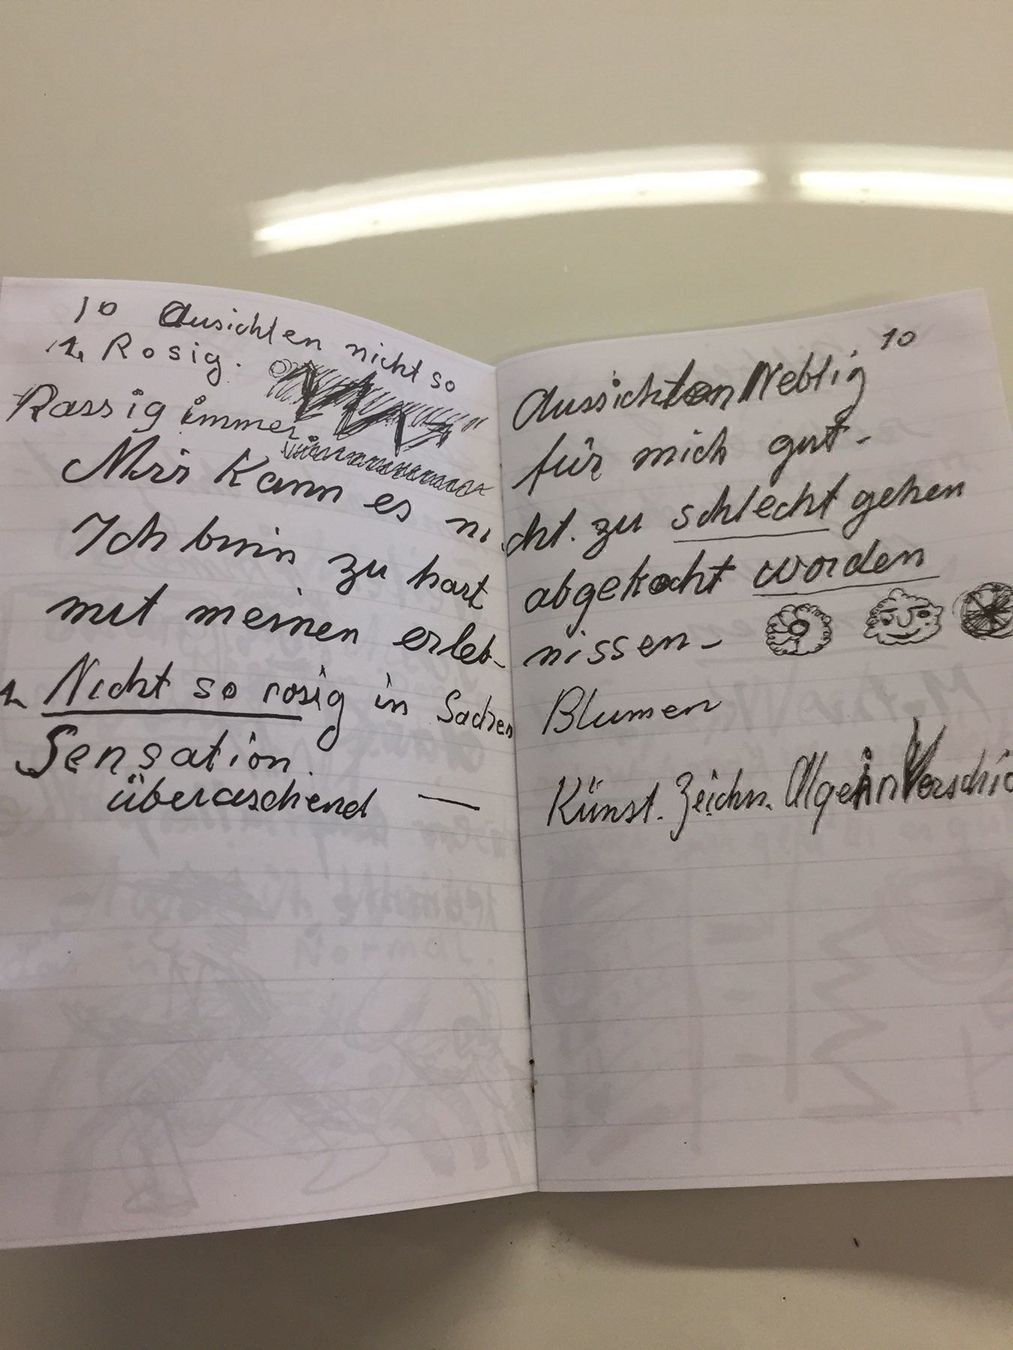 10 Ausichten nicht so
1, Rosig.
Rassig immer
Mir Kann es ni
Ich binn zu hart
mit meinen erleb-
1, Nicht so rosig in Sachen
Sensation.
überaschend —
10
Aussichten Neblig
für mich gut-
cht. zu schlecht gehen
abgekocht worden
nissen-
Blumen
Künst. Zeichn.